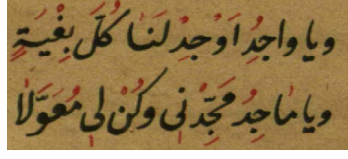 وَيا وَاجِدُ اَوْجِدْ لَنَا كُلَّ بِغْيَةٍ
وَيا مَاجِدُ مَجِّدْنِى وَكُنْ لِى مُعَوَّلَا